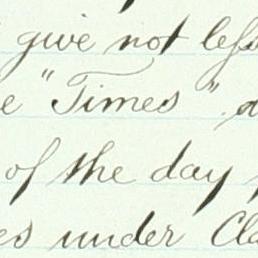 give not less
"Times"
of the day
under